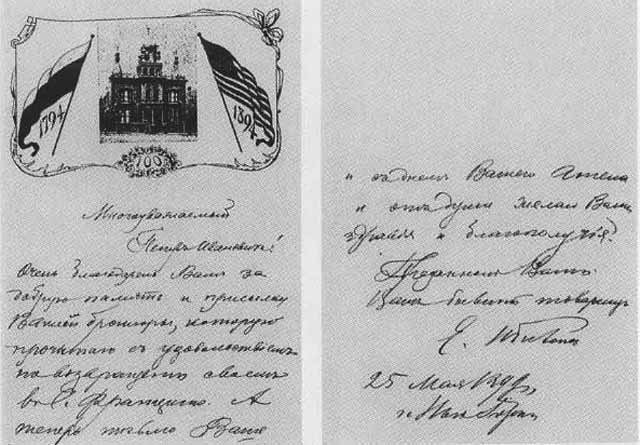 1794
1894
100
Многоуважаемый
Петръ Ивановичъ!
Очень благодаренъ Вамъ за
добрую память и присылку
Вашей брошюры, которую
прочитаю съ удовольствіемъ
по возвращеніи своемъ
въ С. Франциско. А
теперь
и съ днемъ Вашего Ангела
и отъ души желаю Вамъ
здравія и благополучія.
Преданный Вамъ
Вашъ бывшій товарищъ
25 Мая
г. Нью Іоркъ